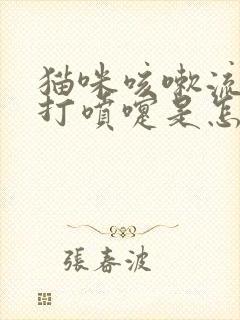 猫咪咳嗽流
打噴嚏是怎
張春波